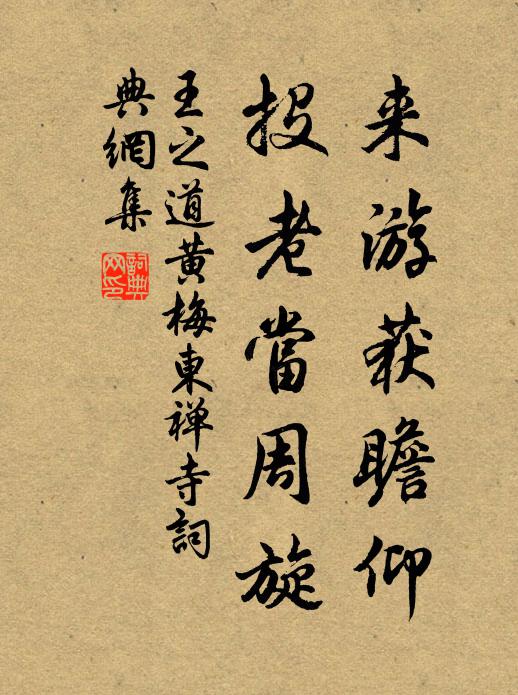 来游获瞻仰
投老當周旋
王之道黄梅東禅寺詞
典網集
詞典网印